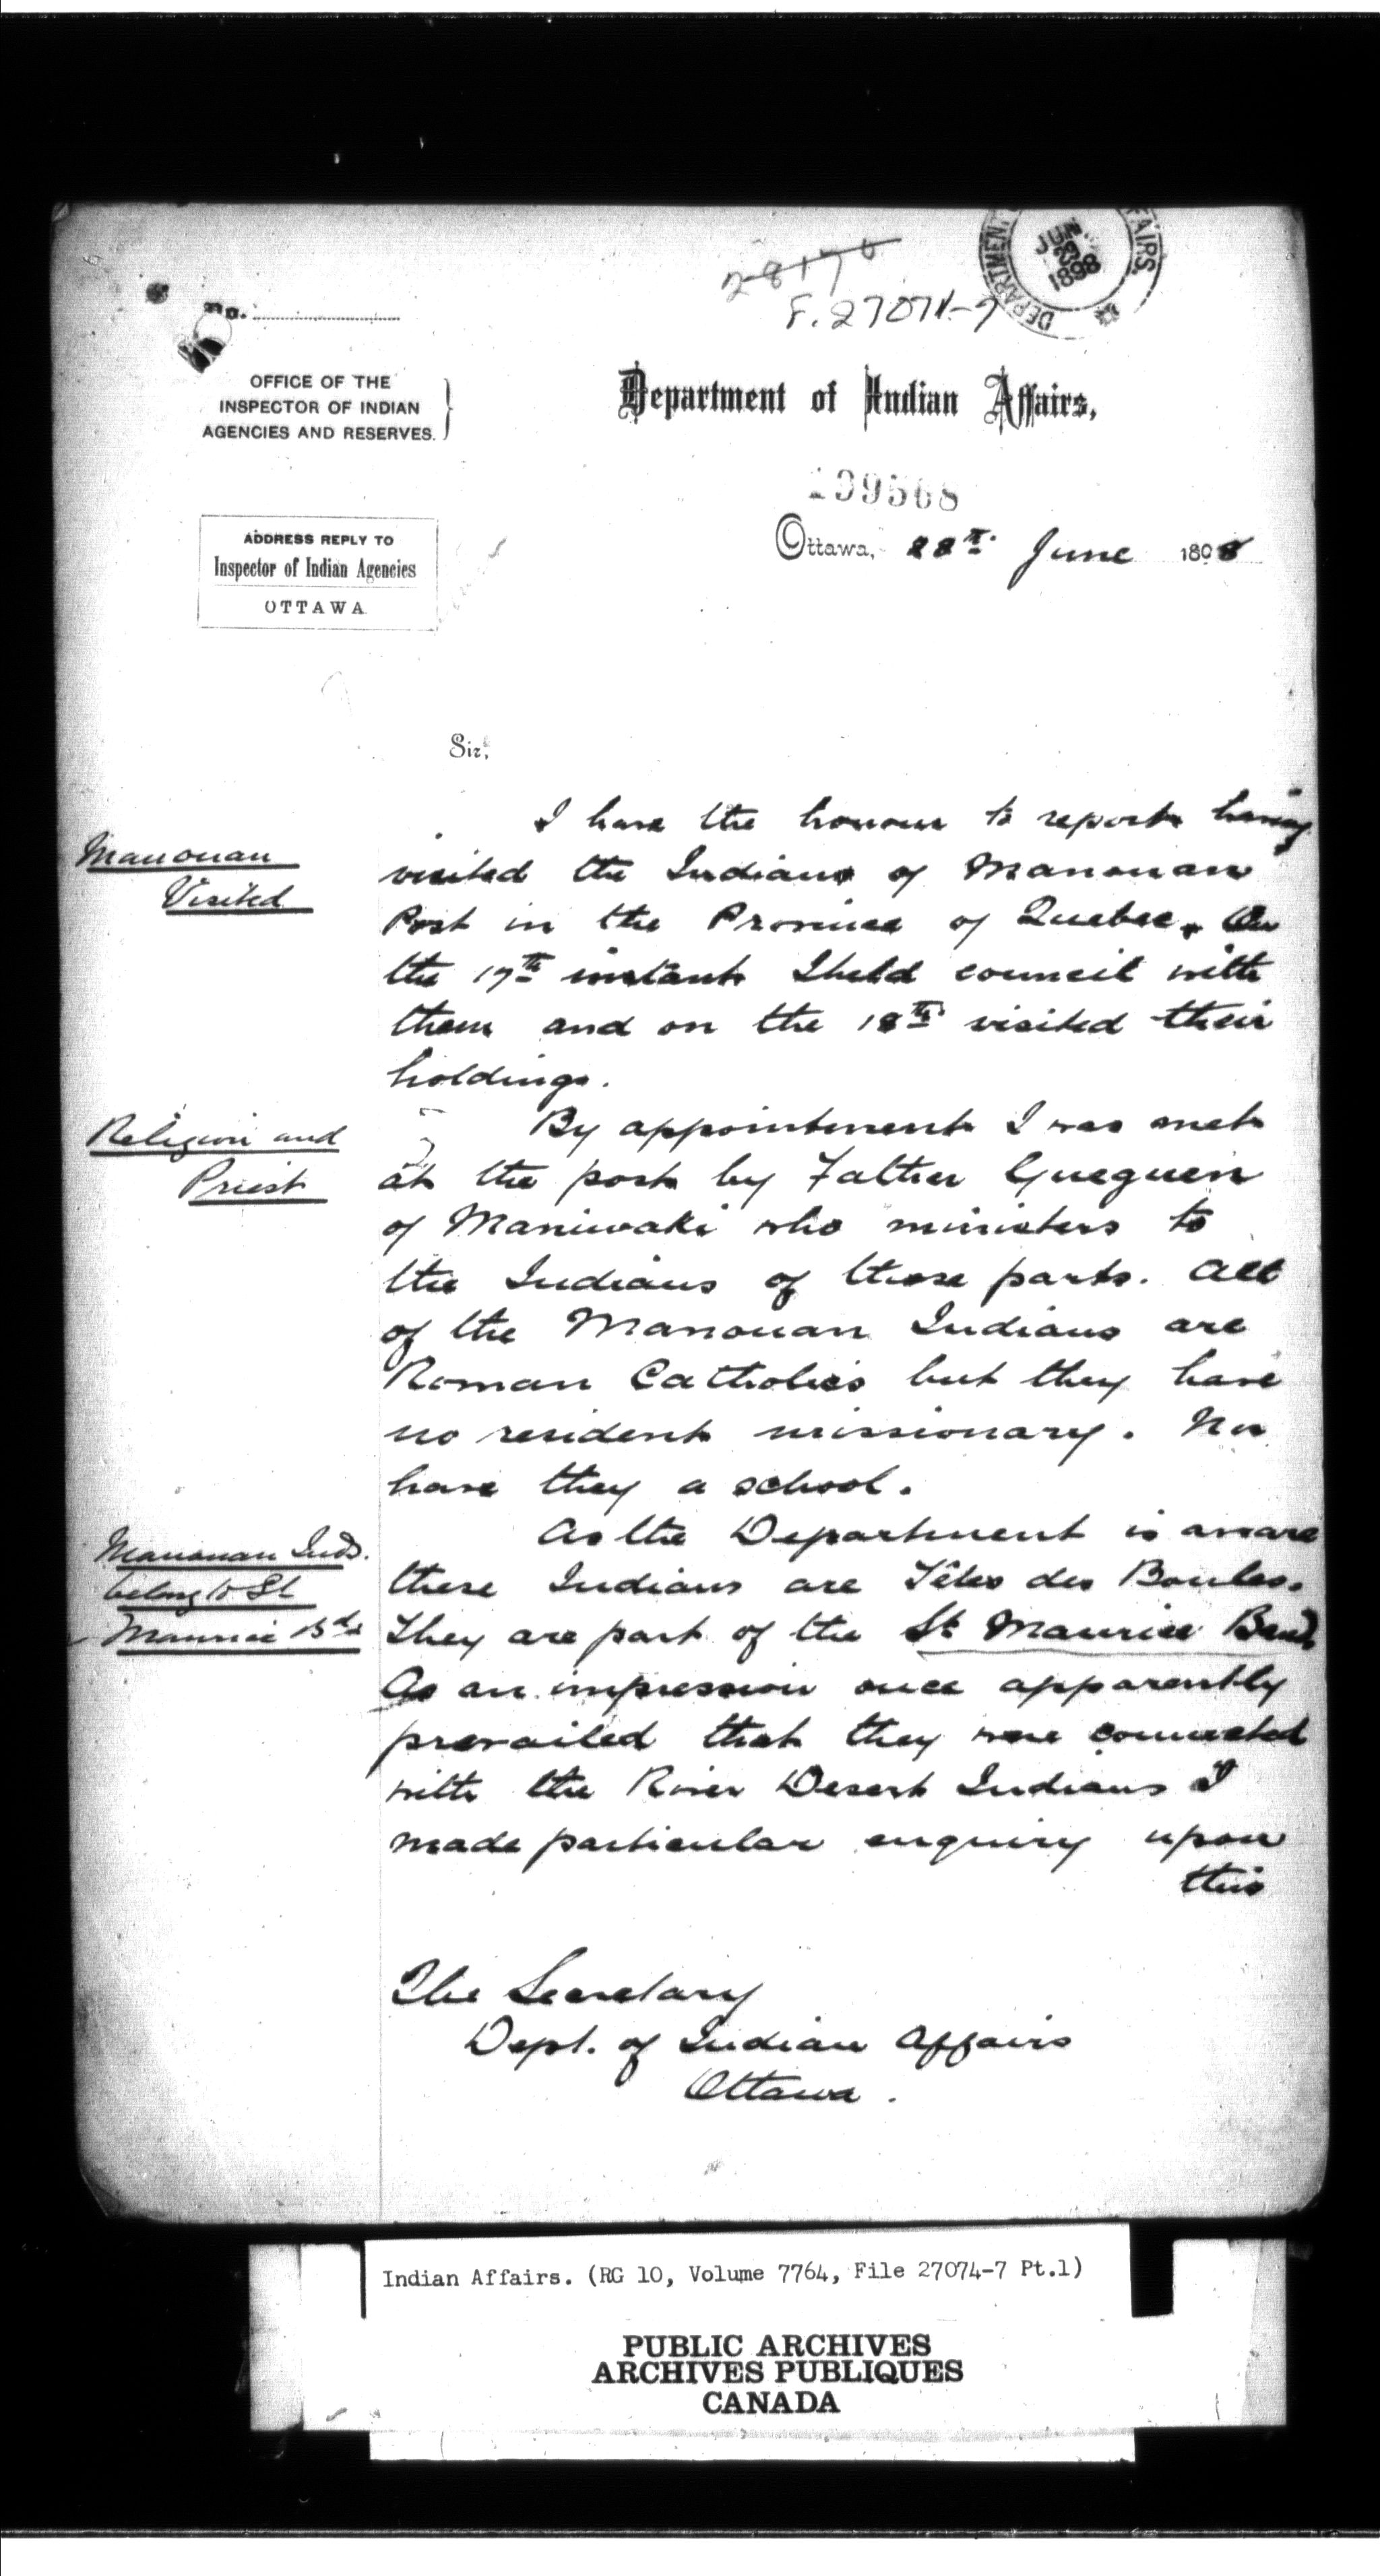 28170
F. 27074-7
DEPARTMENT AFFAIRS.
JUN 28 1898
No.
OFFICE OF THE
INSPECTOR OF INDIAN
AGENCIES AND RESERVES.
Department of Indian Affairs,
139568
ADDRESS REPLY TO
Inspector of Indian Agencies
OTTAWA
Ottawa, 28th June 1898
Sir,
I have the honour to report having
Manouan
Visited
visited the Indians of Manouan
Post in the Province of Quebec. On
the 17th instant I held council with
them and on the 18th visited their
holdings.
Religion and
Priest
By appointment I was met
at the post by Father Gueguen
of Maniwaki who ministers to
the Indians of those parts. All
of the Manouan Indians are
Roman Catholics but they have
no resident missionary. Nor
have they a school.
Manouan Inds.
belong to St
Maurice Bd
As the Department is aware
these Indians are Têtes des Boules.
They are part of the St Maurice Band.
As an impression once apparently
prevailed that they were connected
with the River Desert Indians I
made particular enquiry upon
this
The Secretary
Dept. of Indian Affairs
Ottawa.
Indian Affairs. (RG 10, Volume 7764, File 27074-7 Pt.1)
PUBLIC ARCHIVES
ARCHIVES PUBLIQUES
CANADA